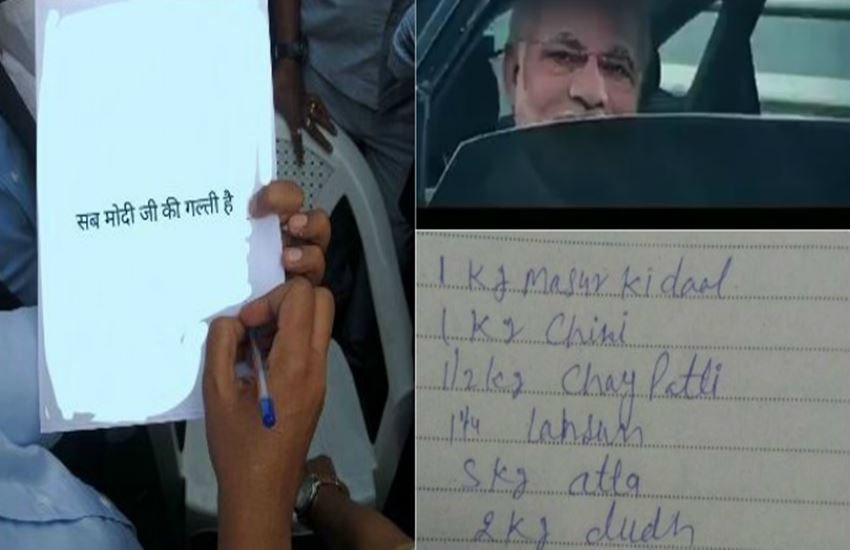 सब मोदी जी की गल्ती है
1 Kg Masur ki daal
1 Kg Chini
1/2 kg Chay Patti
1 1/4 Lahsun
5 kg atta
2 Kg dudh